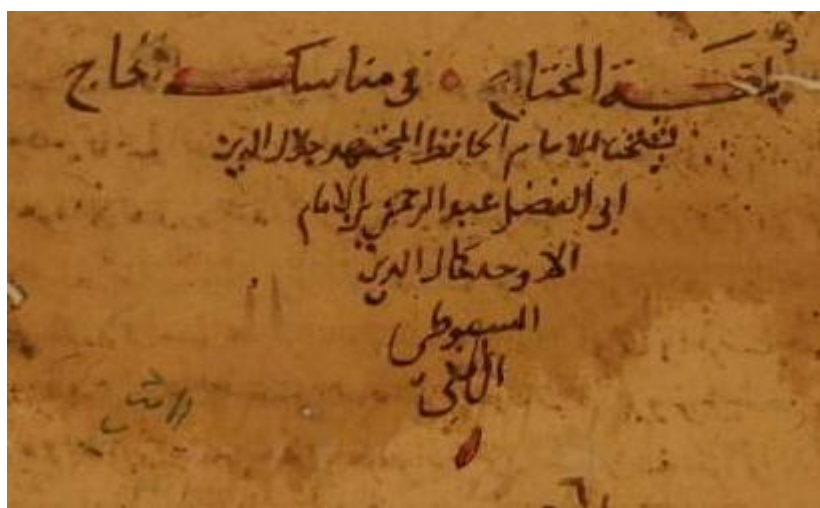 بلغة المحتاج في مناسك الحاج
لشيخنا الامام الحافظ المجتهد جلال الدين
ابى الفضل عبد الرحمن بن الامام
الاوحد كمال الدين
السيوطى